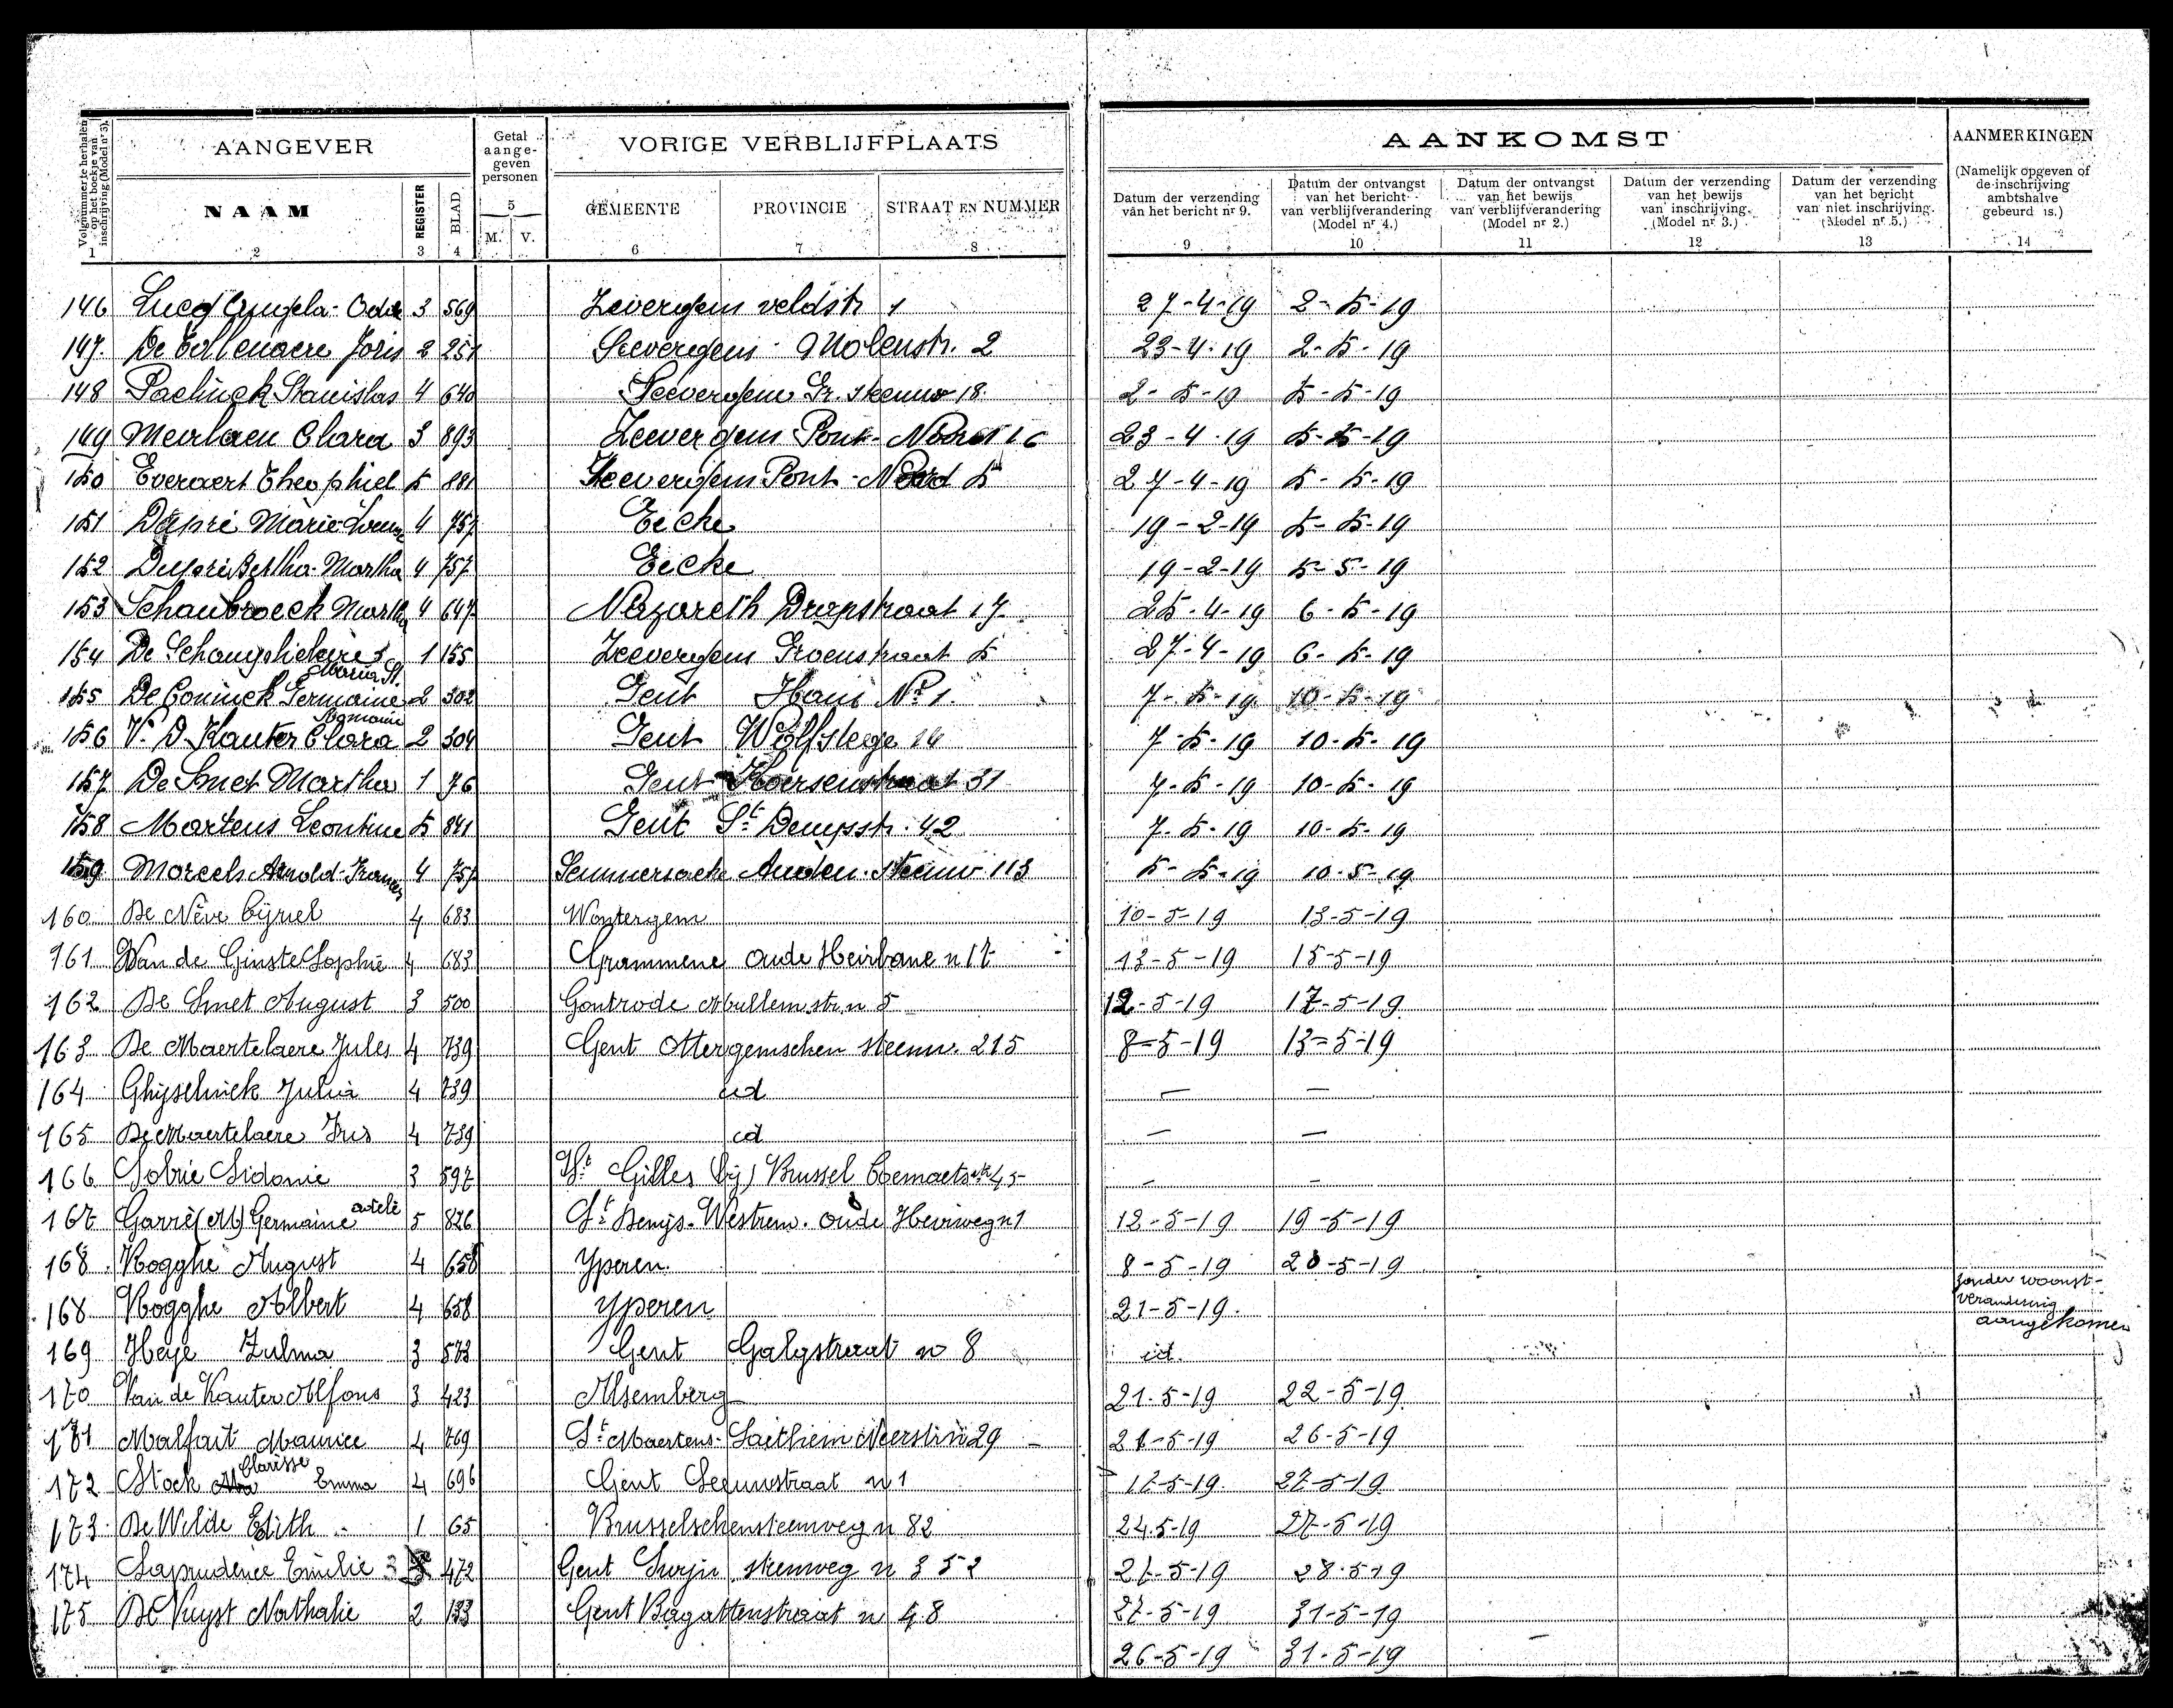 Volgnummer te herhalen op het boekje van inschrijving (Model nr 3).
AANGEVER
Getal aange- geven personen
VORIGE VERBLIJFPLAATS
AANKOMST
AANMERKINGEN
(Namelijk opgeven of de inschrijving ambtshalve gebeurd is.)
NAAM REGISTER BLAD M. V. GEMEENTE PROVINCIE STRAAT EN NUMMER
Datum der verzending van het bericht nr 9.
Datum der ontvangst van het bericht van verblijfverandering (Model nr 4.)
Datum der ontvangst van het bewijs van verblijfverandering (Model nr 2.)
Datum der verzending van het bewijs van inschrijving. (Model nr 3.)
Datum der verzending van het bericht van niet inschrijving. (Model nr 5.)
1 2 3 4 5 6 7 8 9 10 11 12 13 14
146 Angela - Oda 3 569 Zevergem veldstr 1 27-4-19 2-5-19
147. Joris 2 251 Seevergem Molenstr. 2 23-4-19 2-5-19
148 Paelinck Stanislas 4 640 Seevergem Gr. steenw 18. 2-5-19 5-5-19
149 Meirlaen Clara 3 893 Zeevergem Pont-Noord 16 23-4-19 5-5-19
150 Everaert Theophiel 5 881 Zeevergem Pont-Noord 5 27-4-19 5-5-19
151 Dupré Marie-Louise 4 757 Eecke 19-2-19 5-5-19
152 Dupré Bertha-Martha 4 757 Eecke 19-2-19 5-5-19
153 Schaubroeck Martha 4 647 Nazareth Drapstraat 17 25-4-19 6-5-19
154 De 1 155 Zeevergem Groenstraat 5 27-4-19 6-5-19
Maria St.
155 De Coninck Germaine 2 302 Gent Nr 1. 7-5-19 10-5-19
Romanie
156 V. D. Kauter Clara 2 304 Gent Wolfstege 14 7-5-19 10-5-19
157 De Smet Martha 1 76 Gent Keersenstraat 31 7-5-19 10-5-19
158 Martens Leontine 5 841 Gent St Denysstr. 42 7-5-19 10-5-19
159 Moreels Arnold-Frans 4 757 Semmersaeke Auden. steenw. 113 5-5-19 10-5-19
160 De Nève Cyriel 4 683 Wontergem 10-5-19 13-5-19
161 Van de Ginste Sophie 4 683 Grammene Oude Heirbane n 17 13-5-19 15-5-19
162 De Smet August 3 500 Gontrode Mullem.str. n 5 12-5-19 17-5-19
163 De Maertelaere Jules 4 739 Gent Ottergemschen steenw. 215 8-5-19 13-5-19
164 Ghyselinck Julia 4 739 id — —
165 De Maertelaere Iris 4 739 id — —
166 Sobrie Sidonie 3 597 St Gilles (bij) Brussel Coemaetsstr 45 - -
167 Garré (M) Germaine adele 5 826 St Denijs-Westrem. Oude Heirweg n 1 12-5-19 19-5-19
168 Rogghe August 4 658 Yperen. 8-5-19 20-5-19
168 Rogghe Albert 4 658 Yperen 21-5-19. zonder woonst-
verandering
aangekomen
169 Heye Zulma 3 573 Gent Galgstraat no 8 id.
170 Van de Kauter Alfons 3 423 Alsemberg 21-5-19 22-5-19
171 Malfait Maurice 4 769 St Maertens-Laethem Meerstr. n 29 21-5-19 26-5-19
172 Stock Clarisse Emma 4 696 Gent Leeuwstraat n 1 17-5-19. 27-5-19
173 De Wilde Edith 1 65 Brusselschensteenweg n 82 24.5-19 27-5-19
174 Laprudence Emilie 3 472 Gent Swijn steenweg n 352 21-5-19 28.5-19
175 De Vuyst Nathalie 2 133 Gent Bagattenstraat n 48 27-5-19 31-5-19
26-5-19 31-5-19